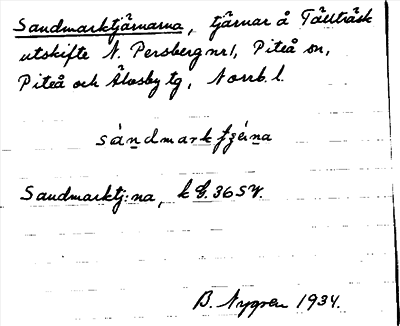 Sandmarktjärnarna, tjärnar å Tällträsk
utskifte N. Persberg nr 1, Piteå sn,
Piteå och Älvsby tg, Norrb. l.
sándmark
Sandmarktj:na, k 36 SV.
B. Nygren 1934.